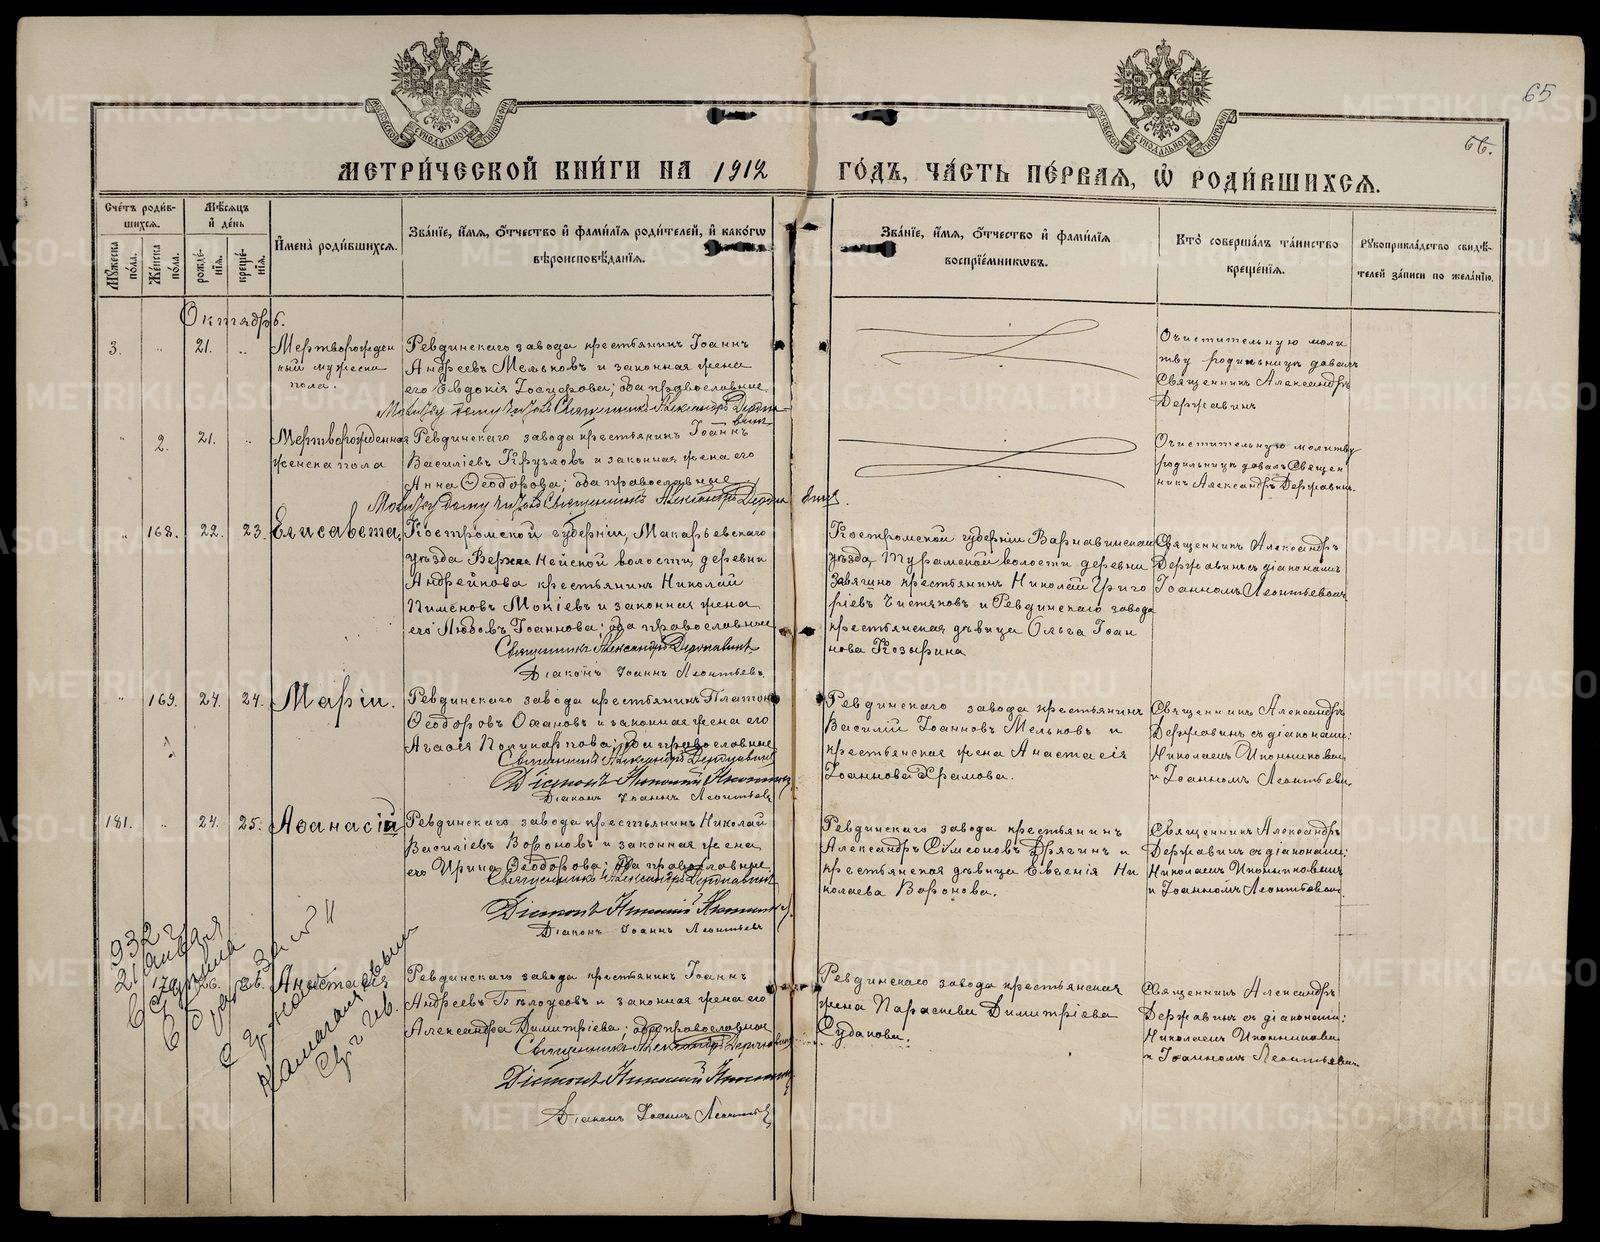 65
66.
МЕТРИ́ЧЕСКОЙ КНИ́ГИ НА 1912 ГО́ДЪ, ЧА́СТЬ ПЕ́РВАЯ, Ѡ҆ РОДИ́ВШИХСЯ.
Сче́тъ роди́в-
шихся.
Мꙋ́жеска по́ла.
Же́нска по́ла.
Мѣ́сяцъ и҆ де́нь
рожде́нїя.
креще́нїя.
И҆мена̀ роди́вшихся.
Зва́нїе, и҆́мя, ѻ҆́тчество и҆ фами́лїя роди́телей, и҆ како́гѡ
вѣроисповѣ́данїя.
Зва́нїе, и҆́мя, ѻ҆́тчество и҆ фами́лїя
воспрїе́мникѡвъ.
Кто̀ соверша́лъ та́инство
креще́нїя.
Рꙋкоприкла́дство свидѣ́-
телей за́писи по жела́нїю.
Октябрь.
3. „ 21. „
Мертворожден
ный мужеска
пола.
Ревдинскаго завода крестьянинъ Іоаннъ
Андреевъ Мельковъ и законная жена
его Евдокія Іосифова; оба православные
Молитву
Священникъ Александръ Держа
винъ
Очистительную моли
тву родильницѣ давалъ
Священникъ Александръ
Державинъ
„ 2. 21. „
Мертворожденная
женска пола
Ревдинскаго завода крестьянинъ Іоаннъ
Василіевъ Кругловъ и законная жена его
Анна Ѳеодорова; оба православные
Молитву
Священникъ Александръ Держа
винъ.
Очистительную молитву
родильницѣ давалъ Священ
никъ Александръ Державинъ.
„ 168. 22. 23. Елисавета.
Костромской губерніи, Макарьевскаго
уѣзда Верхне Нейской волости, деревни
Андрейкова крестьянинъ Николай
Пименовъ Мокіевъ и законная жена
его Любовь Іоаннова; оба православные
Священникъ Александръ Державинъ
Діаконъ Іоаннъ Леонтьевъ.
Костромской губерніи Варнавинскаго
уѣзда, Турамской волости деревни
Завягино крестьянинъ Николай Григо
ріевъ Чистяковъ и Ревдинскаго завода
крестьянская дѣвица Ольга Іоан
нова Козырина
Священникъ Александръ
Державинъ съ діакономъ
Іоанномъ Леонтьевымъ
„ 169. 24. 24. Марія.
Ревдинскаго завода крестьянинъ Платонъ
Ѳеодоровъ Ожановъ и законная жена его
Агасія Поликарпова; оба православные
Священникъ Александръ Державинъ
Діаконъ Николай
Діаконъ Іоаннъ Леонтьевъ
Ревдинскаго завода крестьянинъ
Василій Іоанновъ Мельковъ и
крестьянская жена Анастасія
Іоаннова Храмова.
Священникъ Александръ
Державинъ съ діаконами:
Николаемъ Иконниковымъ
и Іоанномъ Леонтьевымъ
181. „ 24. 25. Аѳанасій
Ревдинскаго завода крестьянинъ Николай
Василіевъ Вороновъ и законная жена
его Ирина Ѳеодорова; оба православные
Священникъ Александръ Державинъ
Діаконъ Николай
Діаконъ Іоаннъ Леонтьевъ
Ревдинскаго завода крестьянинъ
Александръ Симеоновъ Дрягинъ и
крестьянская дѣвица Евгенія Ни
колаева Воронова.
Священникъ Александръ
Державинъ съ діаконами:
Николаемъ Иконниковымъ
и Іоанномъ Леонтьевымъ
170. 26. 26. Анастасія
Ревдинскаго завода крестьянинъ Іоаннъ
Андреевъ Бѣлоусовъ и законная жена его
Александра Димитріева; оба православные
Священникъ Александръ Державинъ
Діаконъ Николай
Діаконъ Іоаннъ Леонтьевъ
Ревдинскаго завода крестьянская
жена Параскева Димитріева
Судакова.
Священникъ Александръ
Державинъ съ діаконами:
Николаемъ Иконниковымъ
и Іоанномъ Леонтьевымъ.
932 г
21 января
METRIKI.GASO-URAL.RU